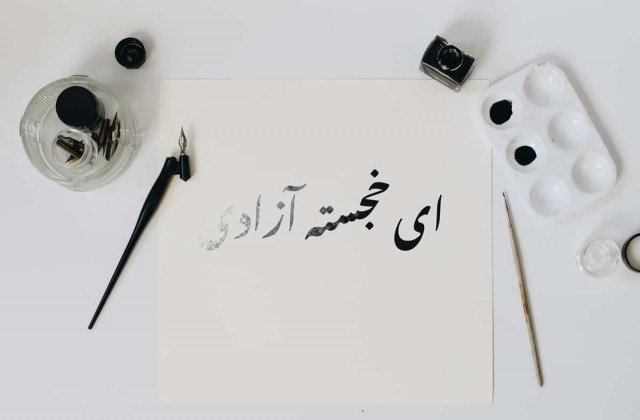 ای خجسته آزادی